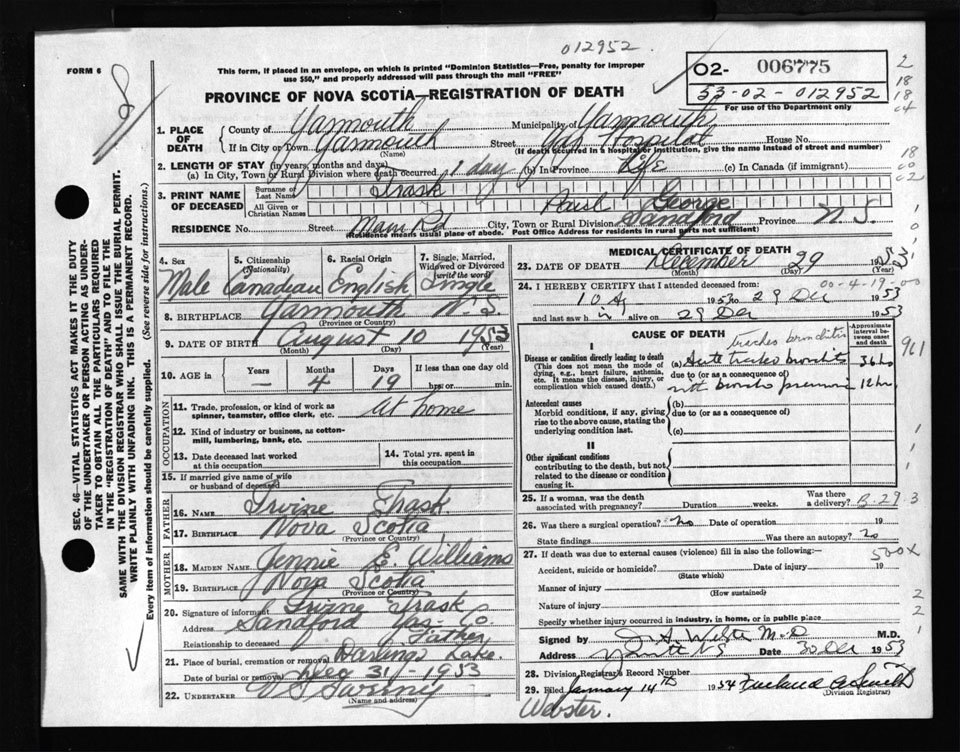 012952.
FORM 6
This form, if placed in an envelope, on which is printed "Dominion Statistics—Free, penalty for improper
use $50," and properly addressed will pass through the mail "FREE"
O2- 006775
53-02-012952
For use of the Department only
PROVINCE OF NOVA SCOTIA—REGISTRATION OF DEATH
1. PLACE OF DEATH
County of Yarmouth Municipality of Yarmouth
If in City or Town Yarmouth (Name) Street Yar Hospital House No.
(If death occurred in a hospital or institution, give the name instead of street and number)
2. LENGTH OF STAY (in years, months and days)
(a) In City, Town or Rural Division where death occurred 1 day (b) in Province Life (c) In Canada (if immigrant)
3. PRINT NAME OF DECEASED
Surname or Last Name Trask
All Given or Christian Names Paul George
RESIDENCE No. Street Main Rd. City, Town or Rural Division Sandford Province N.S.
(Residence means usual place of abode. Post Office Address for residents in rural parts not sufficient)
4. Sex
Male
5. Citizenship (Nationality)
Canadian
6. Racial Origin
English
7. Single, Married, Widowed or Divorced (write the word)
Single
8. BIRTHPLACE Yarmouth N.S.
(Province or Country)
9. DATE OF BIRTH August 10 1953
(Month) (Day) (Year)
10. AGE in Years — Months 4 Days 19 If less than one day
hrs. or min.
OCCUPATION
11. Trade, profession, or kind of work as
spinner, teamster, office clerk, etc. At home
12. Kind of industry or business, as cotton-
mill, lumbering, bank, etc.
13. Date deceased last worked
at this occupation
14. Total yrs. spent in
this occupation
15. If married give name of wife
or husband of deceased
FATHER
16. NAME Irvine Trask
17. BIRTHPLACE Nova Scotia
(Province or Country)
MOTHER
18. MAIDEN NAME Jennie E. Williams
19. BIRTHPLACE Nova Scotia
(Province or Country)
20. Signature of informant Irvine Trask
Address Sandford Yar. Co.
Relationship to deceased Father
21. Place of burial, cremation or removal Darlings Lake.
Date of burial or removal Dec 31 - 1953
22. UNDERTAKER V S Sweeny
(Name and address)
MEDICAL CERTIFICATE OF DEATH
23. DATE OF DEATH December 29 1953
(Month) (Day) (Year)
24. I HEREBY CERTIFY that I attended deceased from: 00-4-19-00
1953 to 29 Dec 1953
and last saw h im alive on 29 Dec 1953
CAUSE OF DEATH
Approximate interval between onset and death
I
Disease or condition directly leading to death
(This does not mean the mode of
dying, e.g., heart failure, asthenia,
etc. It means the disease, injury, or
complication which caused death.)
Tracheo bronchitis
(a) Acute tracheo bronchitis 36 hrs
due to (or as a consequence of)
with broncho pneumonia 12 hr
Antecedent causes
Morbid conditions, if any, giving
rise to the above cause, stating the
underlying condition last.
(b)
due to (or as a consequence of)
(c)
II
Other significant conditions
contributing to the death, but not
related to the disease or condition
causing it.
25. If a woman, was the death
associated with pregnancy? Duration weeks. Was there
a delivery? B-29.3
26. Was there surgical operation? no Date of operation 19
State findings Was there an autopsy? no
27. If death was due to external causes (violence) fill in also the following:— 500X
Accident, suicide or homicide? Date of injury 19
(State which)
Manner of injury
(How sustained)
Nature of injury
Specify whether injury occurred in industry, in home, or in public place
Signed by M.D. M.D.
Address Yarmouth NS Date 30 Dec 1953
28. Division Registrar's Record Number
29. Filed January 14th 1954
(Division Registrar)
Webster.
SEC. 46—VITAL STATISTICS ACT MAKES IT THE DUTY
OF THE UNDERTAKER OR PERSON ACTING AS UNDER-
TAKER TO OBTAIN ALL THE PARTICULARS REQUIRED
IN THE "REGISTRATION OF DEATH" AND TO FILE THE
SAME WITH THE DIVISION REGISTRAR WHO SHALL ISSUE THE BURIAL PERMIT.
WRITE PLAINLY WITH UNFADING INK. THIS IS A PERMANENT RECORD.
Every item of information should be carefully supplied. (See reverse side for instructions.)